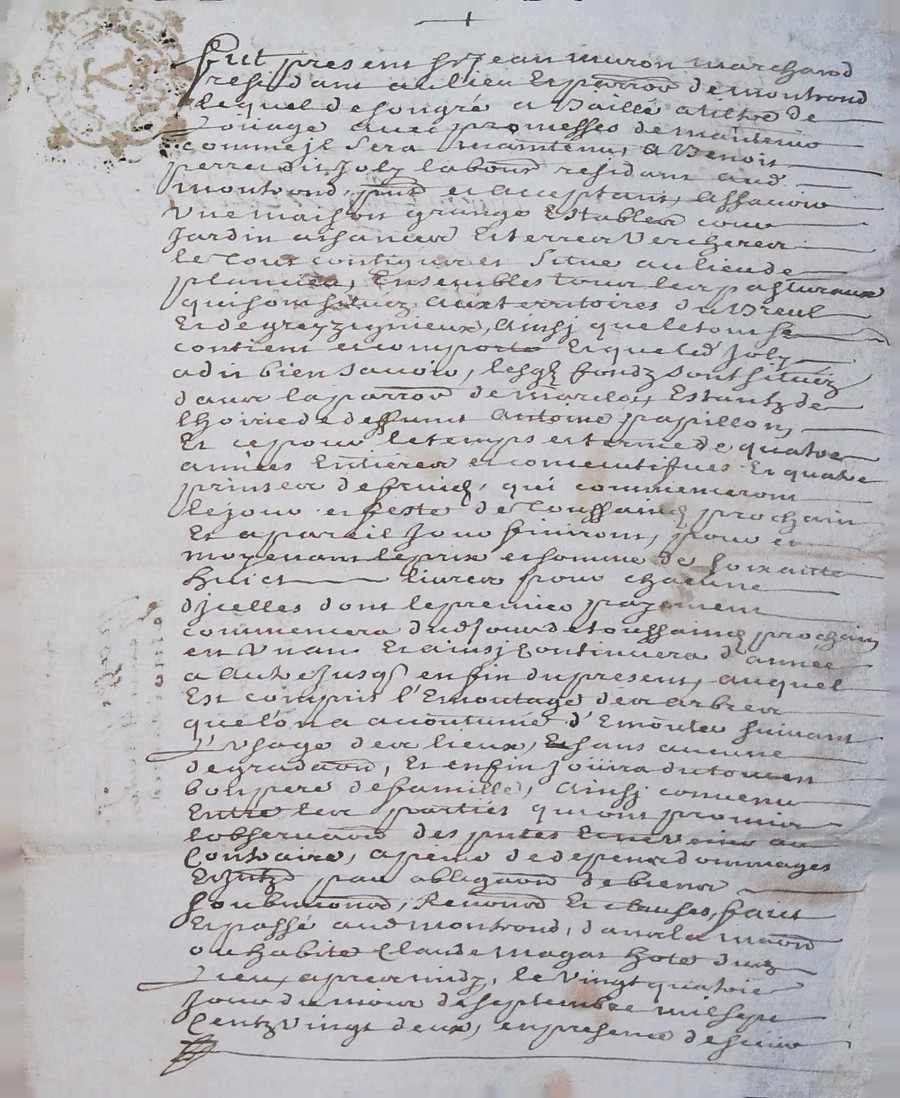 fut present sr Jean muron marchand
residant au lieu et parroē de montrond
lequel de son gré a Baillé a tiltre de
Loüage avec promesses de maintenir
comme il sera maintenu, a Benoit
pierre dit Joly labour residant aud
montrond, pnt et acceptant, assavoir
une maison grange Establer cour
Jardin aisancer et terrer vercherer
le tout contigu et situé au lieu de
plancieu, Ensembles tour ler pasturaux
qui sont situez aux territoires du Breul
et de grezzignieux, ainsi que le tout se
contient et comporte et que led Joly
a dit bien savoir, lesqls fondz sont situéz
dans la parroē de marclou, Estantz de
lhoirie de deffunt Antoine papillon,
Et ce pour le temps et terme de quatre
années Entierer et consecutifuer Et quatre
priseer de fruicts, qui commenceront
le jour et feste de Toussaincts prochain
Et a pareil Jour finiront, pour et
moyenant le prix et somme de soixante
huict livrer pour chacune
d'icelles dont le premier payement
commencera dud Jour de toussainct prochain
en Un an Et ainsj continuera d'année
a autre Jusqs enfin du present, auquel
Est compris l'Emontage der arbrer
que l'on a accoutumé d'Emonter suivant
L'usage der lieux, Et sans aucune
degradaōn, Et enfin Joüira du tout en
bon pere de famille, Ainsj convenu
Entre ler partiés qui ont promis
lobservaōn des pntes Et ne venir au
Contraire, a peine de depens dommages
Et Jntz par obligaōn de bienr
soubmiōns, Renōns Et clauses, faict
Et passé aud montrond, dans la maōn
ou habite Claude magat hote dud
Lieu, apres midy, le vingt quatre
Jour du mois de septembre mil sept
Centz vingt deux, en presence de